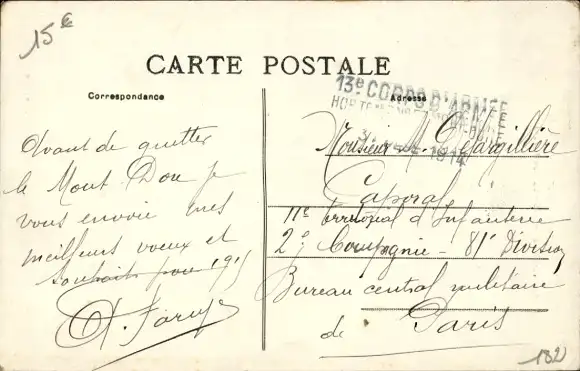 15€
CARTE POSTALE
Correspondance
Adresse
13e CORPS D'ARMÉE
1914
Avant de quitter
le Mont Dore je
vous envoie mes
meilleurs voeux et
souhaits pour 1915
Monsieur
Caporal
11e territorial d'Infanterie
2e Compagnie - 81e Division
Bureau central militaire
de Paris
132